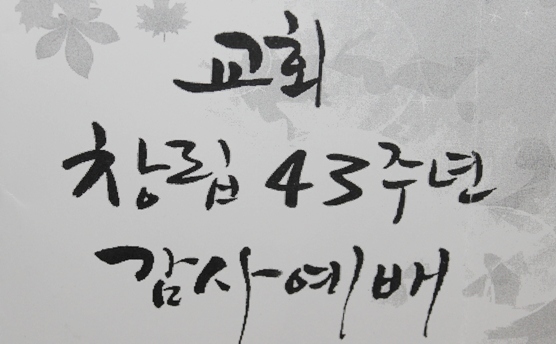 교회
창립 43주년
감사예배